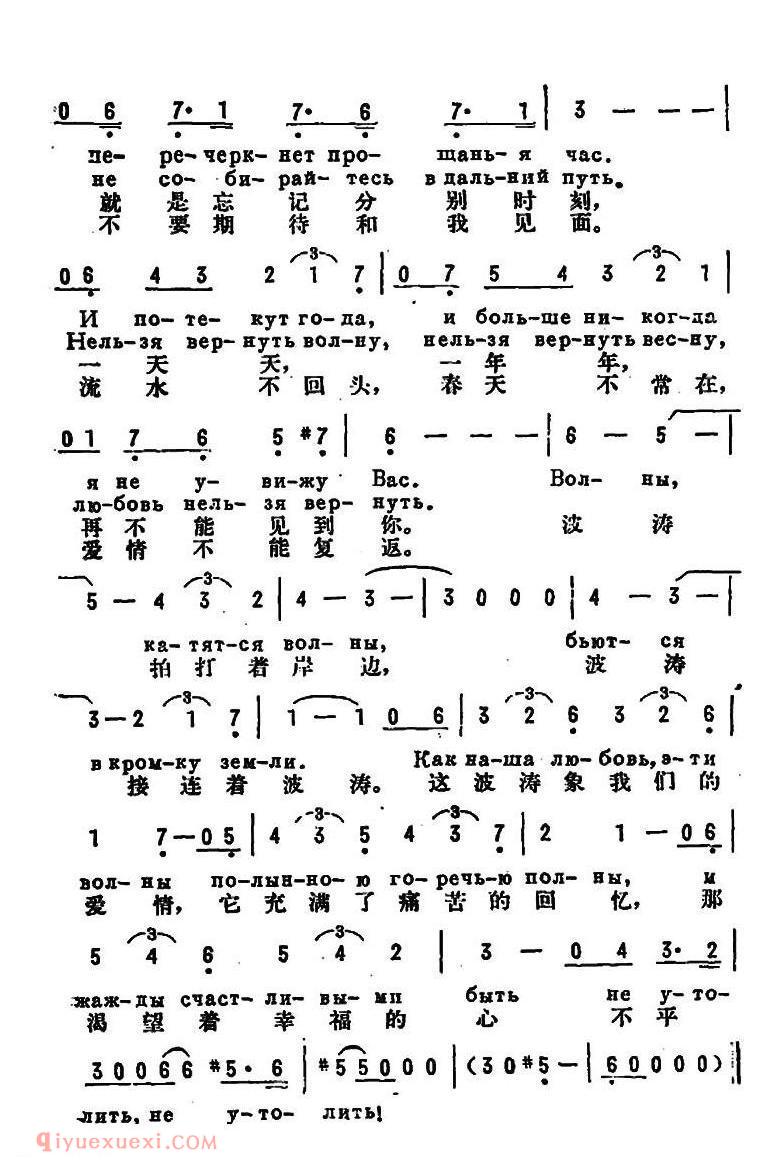 0 6 7· 1 7· 6 7· 1 | 3 — — — |
пе- ре-черк-нет про- щань-я час.
не со-би-рай-тесь в даль-ний путь.
就 是 忘 记 分 别 时 刻,
不 要 期 待 和 我 见 面。
0 6 4 3 2 3 1 7 | 0 7 5 4 3 3 2 1 |
И по-те-кут го-да, и боль-ше ни-ког-да
Нель-зя вер-нуть вол-ну, нель-зя вер-нуть вес-ну,
一 天 天, 一 年 年,
流 水 不 回 头, 春 天 不 常 在,
0 1 7 6 5 #7 | 6 — — — | 6 — 5 —
я не у-ви-жу Вас. Вол-ны,
лю-бовь нель-зя вер-нуть.
再 不 能 见 到 你。 波 涛
爱 情 不 能 复 返。
5 — 4 3 3 2 | 4 — 3 — | 3 0 0 0 | 4 — 3 —
ка-тят-ся вол-ны, бьют-ся
拍 打 着 岸 边, 波 涛
3 — 2 3 1 7 | 1 — 1 0 6 | 3 3 2 6 3 3 2 6 |
в кром-ку зем-ли. Как на-ша лю-бовь, э-ти
接 连 着 波 涛。 这 波 涛 象 我 们 的
1 7 — 0 5 | 4 3 3 5 4 3 3 7 | 2 1 — 0 6 |
вол-ны по-лын-но-ю го-речь-ю пол-ны, и
爱 情, 它 充 满 了 痛 苦 的 回 忆, 那
5 3 4 6 5 3 4 2 | 3 — 0 4 3· 2 |
жаж-ды счаст-ли-вы-ми быть не у-то-
渴 望 着 幸 福 的 心 不 平
3 0 0 6 6 #5· 6 | #5 5 0 0 0 | (3 0 #5 — | 6 0 0 0 0) ‖
лить, не у-то-лить!
qiyuexuexi.com